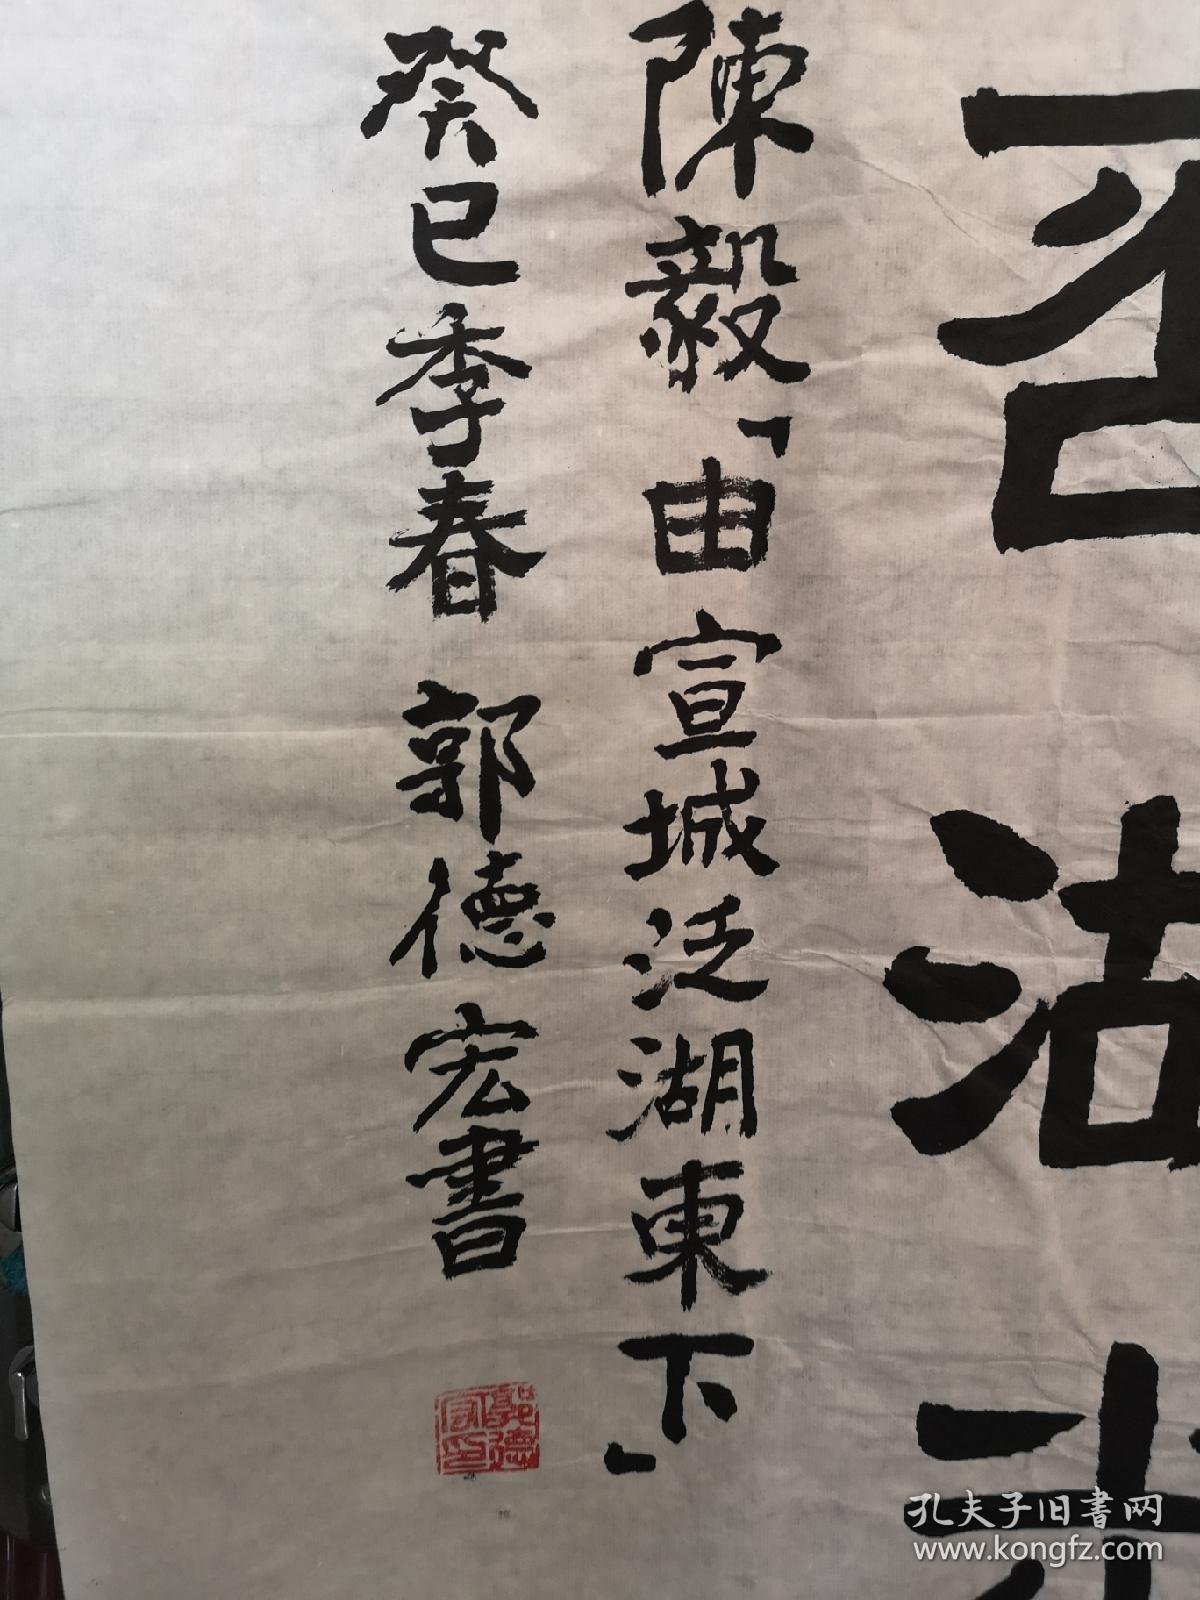 陳毅「由宣城泛湖東下」
癸巳季春 郭德宏書
郭德宏印
孔夫子旧書网
www.kongfz.com